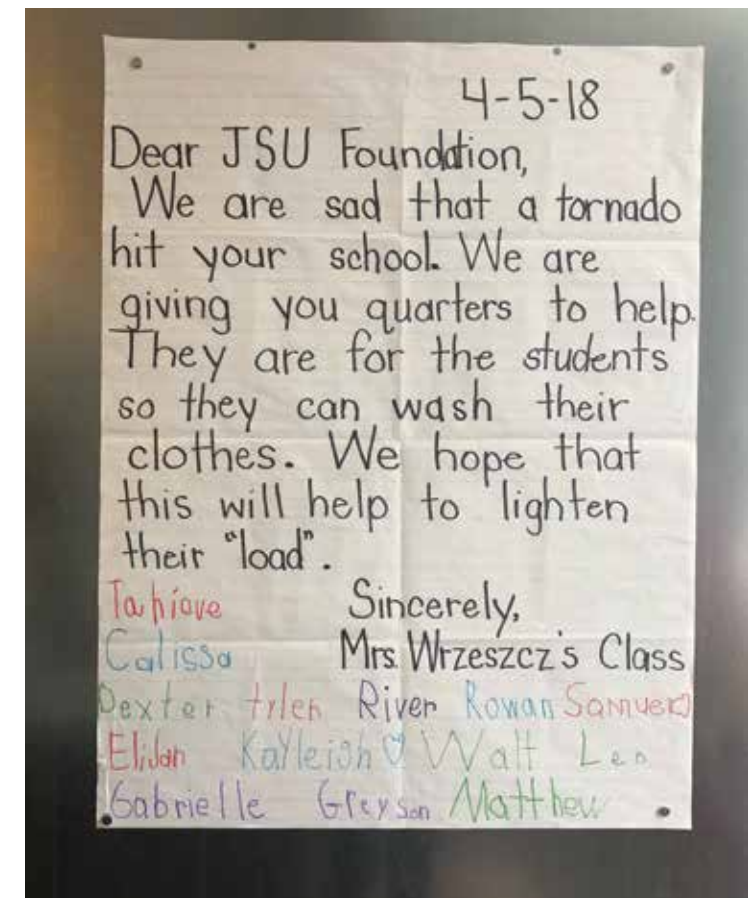 4-5-18
Dear JSU Foundation,
We are sad that a tornado
hit your school. We are
giving you quarters to help.
They are for the students
so they can wash their
clothes. We hope that
this will help to lighten
their "load".
Sincerely,
Calissa Mrs. Wrzeszcz's Class
Dexter tyler River Rowan Samuel
Kayleigh Walt Leo
Gabrielle Greyson Matthew